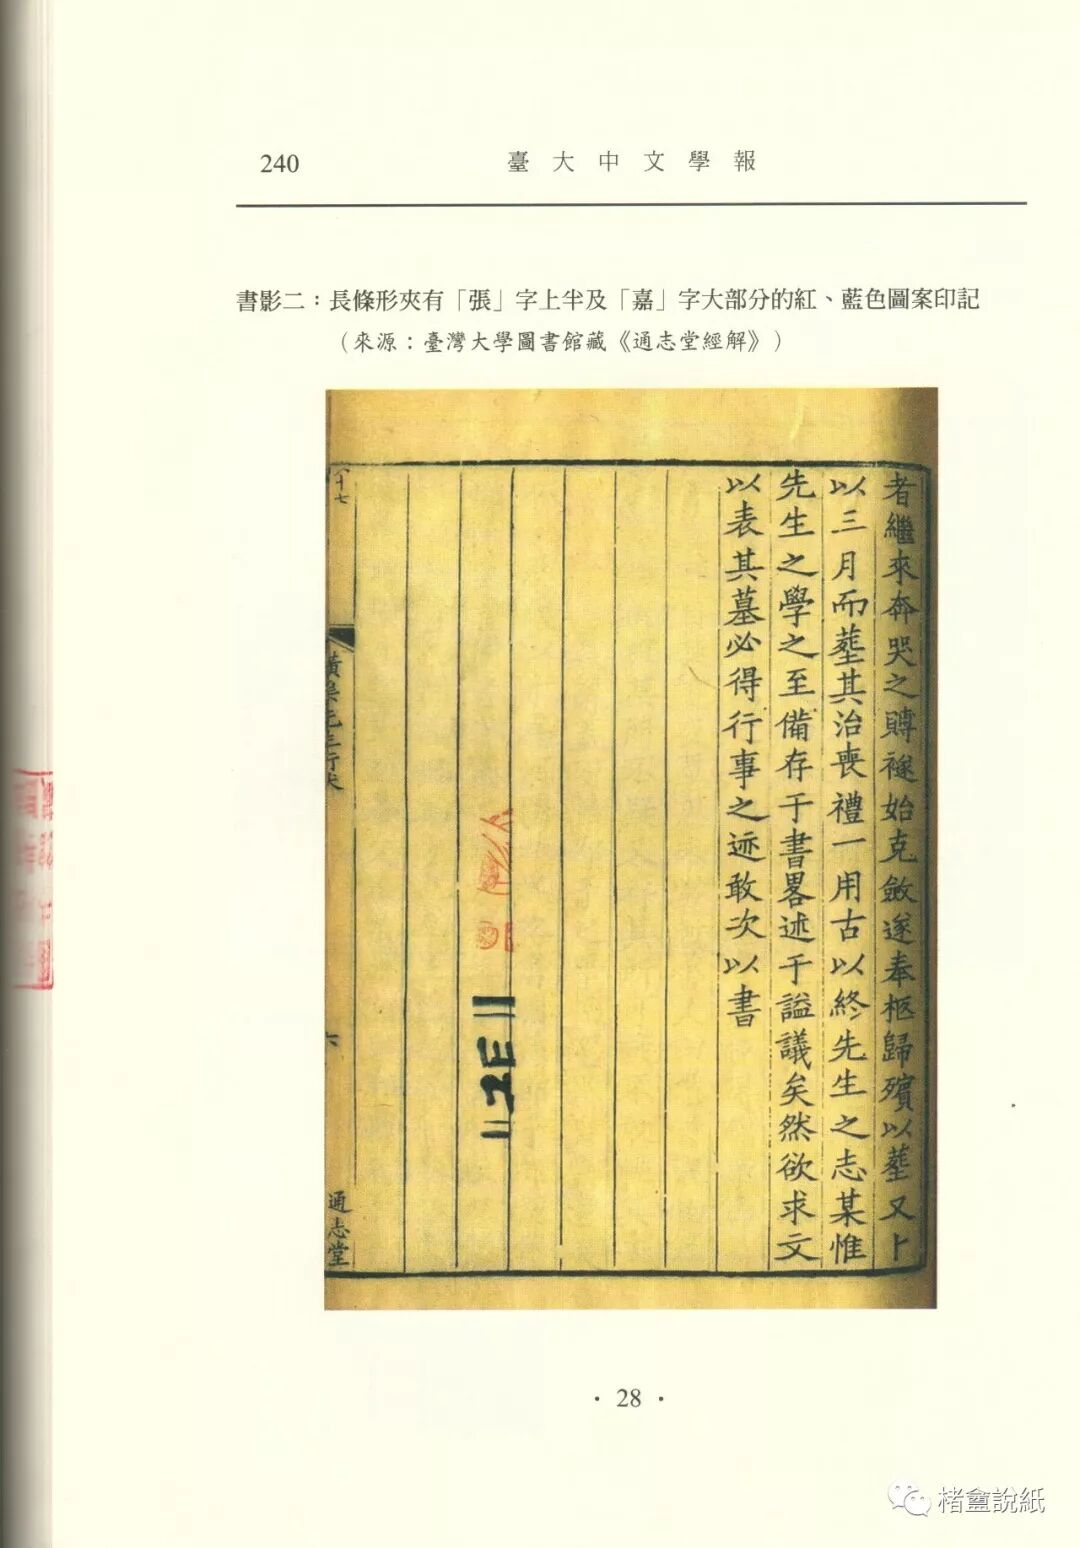 240
臺大中文學報
書影二：長條形夾有「張」字上半及「嘉」字大部分的紅、藍色圖案印記
（來源：臺灣大學圖書館藏《通志堂經解》）
者繼來奔哭之賻襚始克斂遂奉柩歸殯以塟又卜
以三月而塟其治喪禮一用古以終先生之志某惟
先生之學之至備存于書畧述于謚議矣然欲求文
以表其墓必得行事之迹敢次以書
十七
六
通志堂
· 28 ·
楮盦說紙